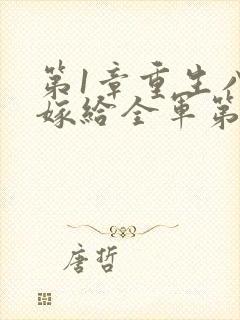 第1章重生八
嫁给全军第
唐哲